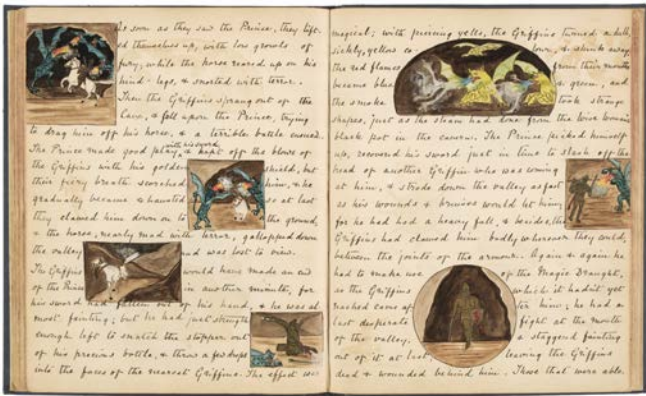 As soon as they saw the Prince, they lift-
ed themselves up, with low growls of
fury, while the horse reared up on his
hind-legs, & snorted with terror.
Then the Griffins sprang out of the
Cave, & fell upon the Prince, trying
to drag him off his horse, & a terrible battle ensued.
The Prince made good play with his sword & kept off the blows of
the Griffins with his golden shield, but
their fiery breath scorched him, & he
gradually became exhausted so at last
they clawed him down on to the ground,
& the horse, nearly mad with terror, gallopped down
the valley and was lost to view.
The Griffins would have made an end
of the Prince in another minute, for
his sword had fallen out of his hand, & he was al-
most fainting; but he had just strength
enough left to snatch the stopper out
of his precious bottle, & throw a few drops
into the faces of the nearest Griffins. The effect was
magical; with piercing yells, the Griffins turned a dull,
sickly, yellow colour, & shrunk away,
the red flames from their mouths
became blue & green, and
the smoke took strange
shapes, just as the steam had done from the wise woman's
black pot in the cavern. The Prince picked himself
up, recovered his sword just in time to slash off the
head of another Griffin who was coming
at him, & strode down the valley as fast
as his wounds & bruises would let him;
for he had had a heavy fall, & besides, the
Griffins had clawed him badly wherever they could,
between the joints of the armour. Again & again he
had to make use of the Magic Draught,
as the Griffins which it hadn't yet
reached came after him; he had a
last desperate fight at the mouth
of the valley, & staggered fainting
out of it at last, leaving the Griffins
dead & wounded behind him. Those that were able